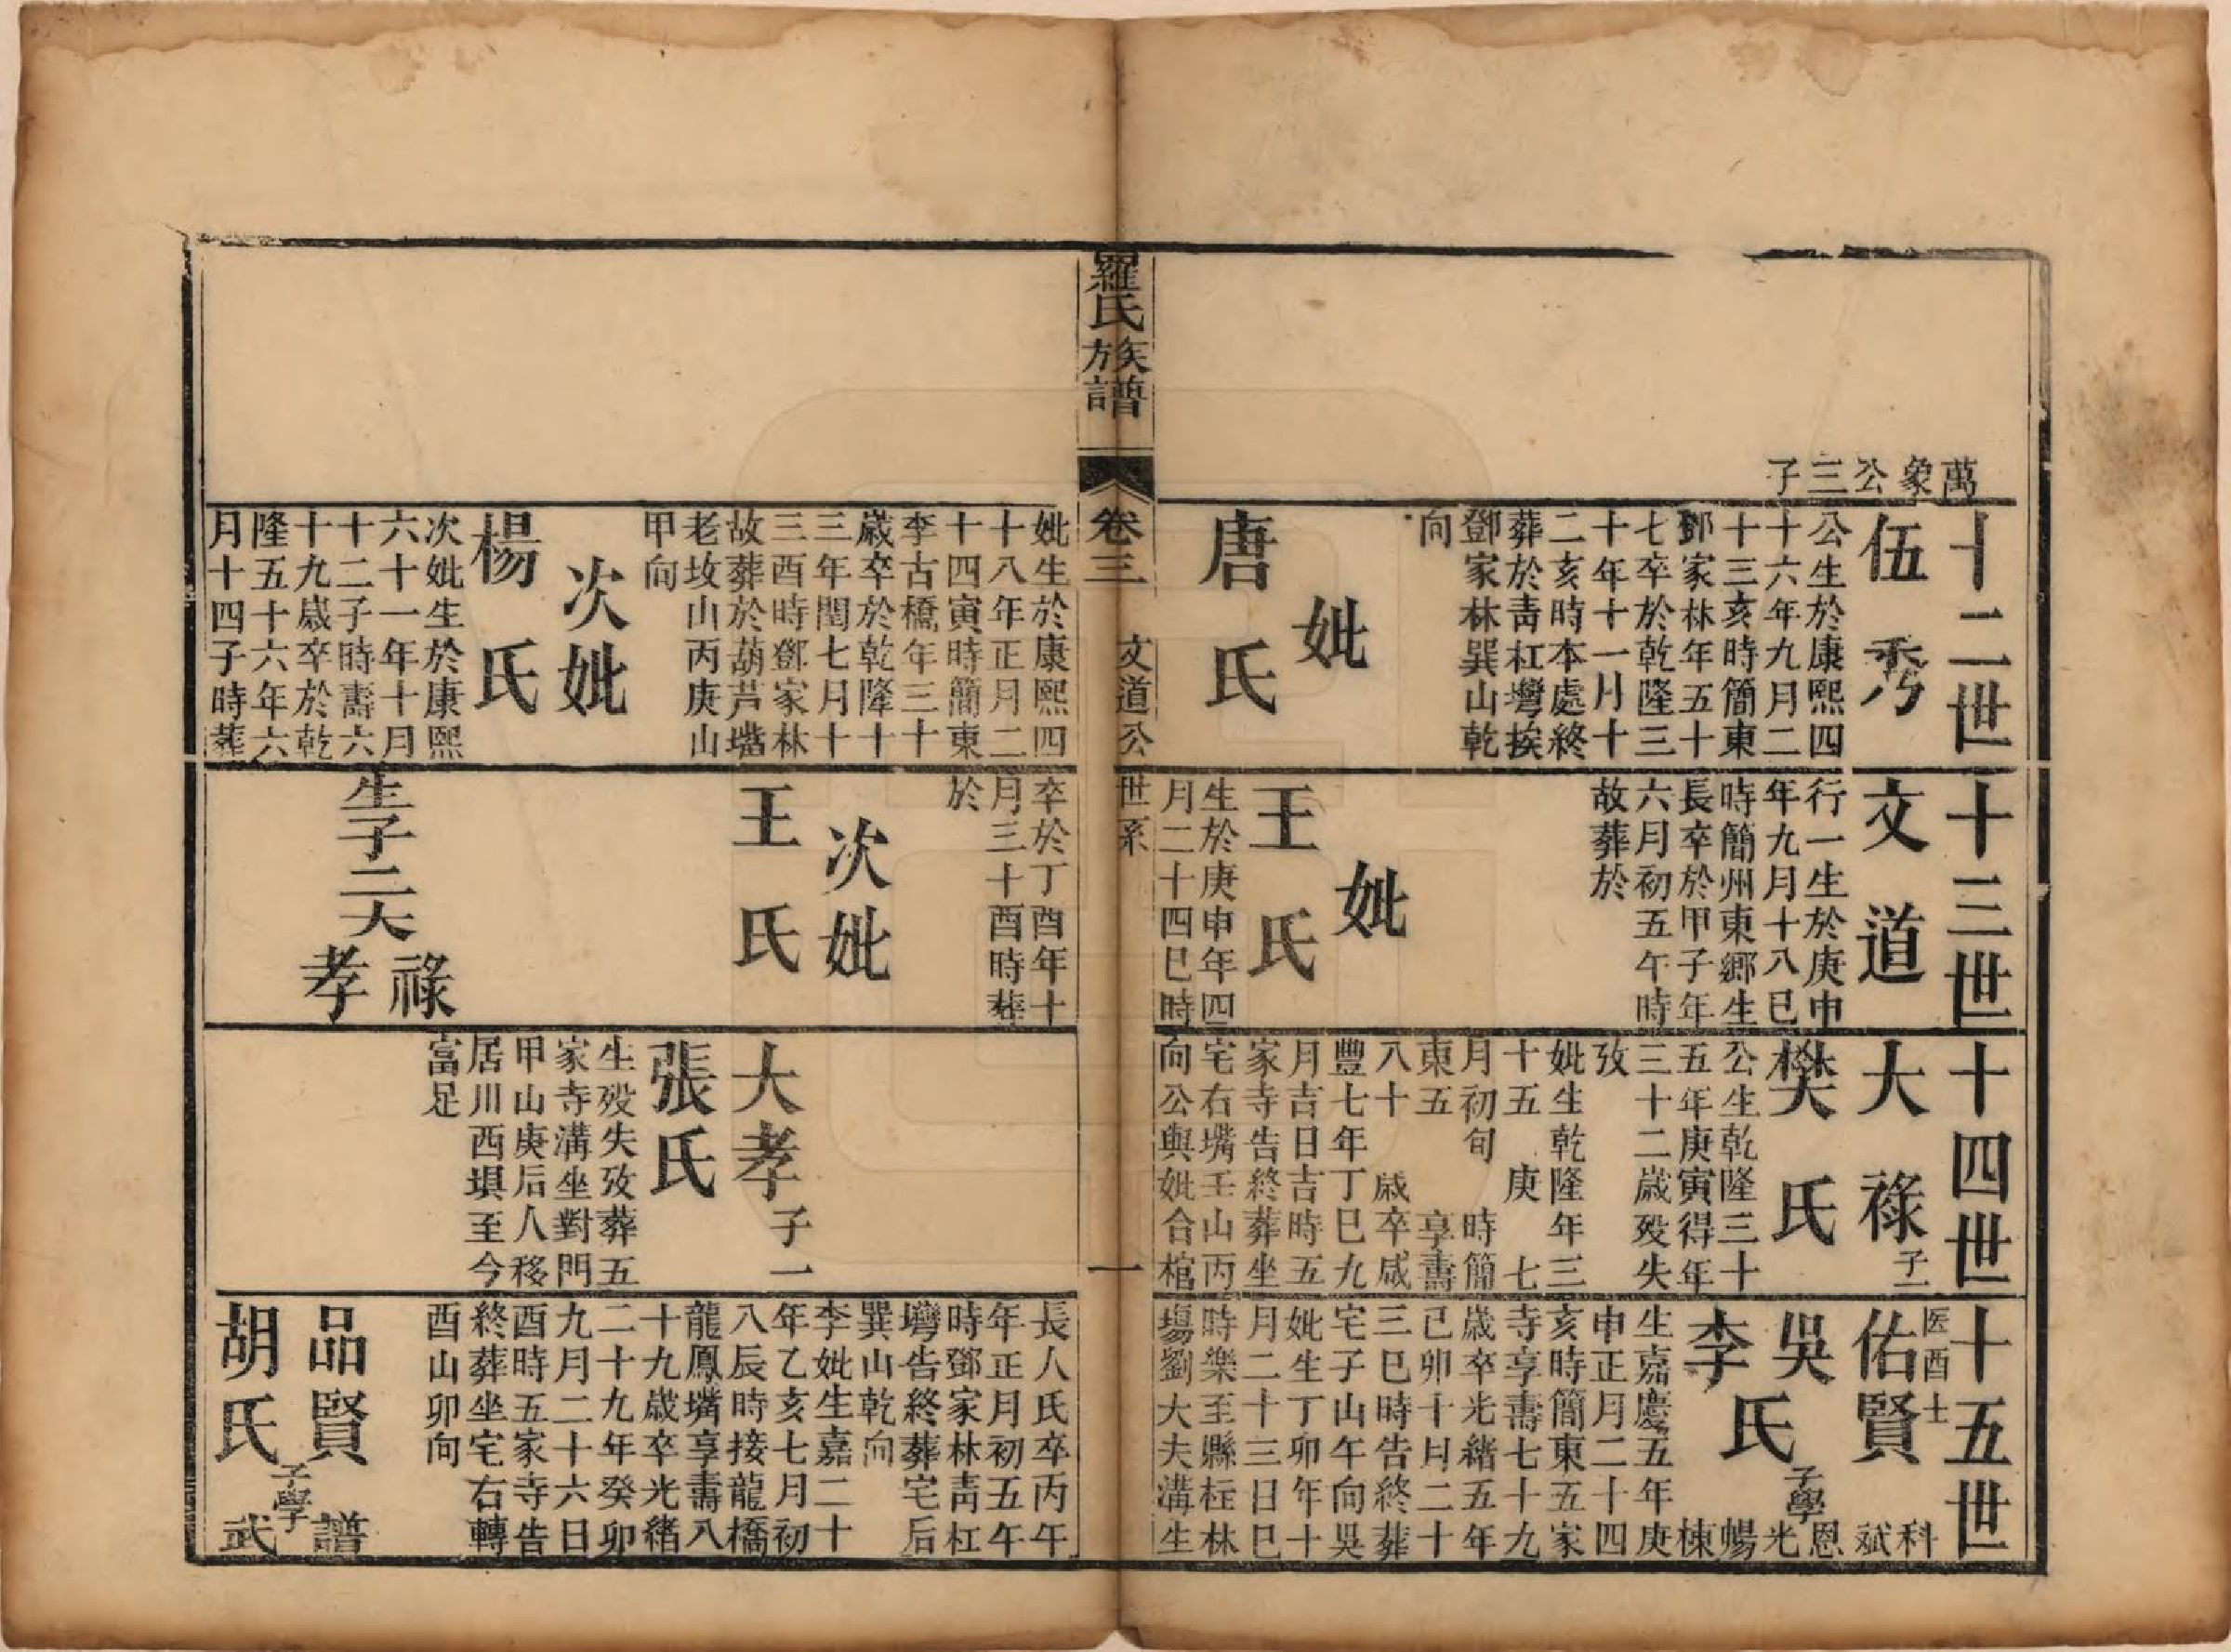 萬象公三子
十二世
伍秀
公生於康熙四
十六年九月二
十三亥時簡東
鄧家林年五十
七卒於乾隆三
十年十一月十
二亥時本處終
葬於青杠灣挨
鄧家林巽山乾
向
妣
唐氏
十三世
文道
行一生於庚申
年九月十八巳
時簡州東鄉生
長卒於甲子年
六月初五午時
故葬於
妣
王氏
生於庚申年四
月二十四巳時
十四世
大祿
子二
樊氏
公生乾隆三十
五年庚寅得年
三十二歲殁失
攷
妣生乾隆年三
十五 庚 七
月初旬 時簡
東五 享壽
八十 歲卒咸
豐七年丁巳九
月吉日吉時五
家寺告終葬坐
宅右嘴壬山丙
向公與妣合棺
十五世
医酉士
佑賢
吳李氏
子學
科斌恩光暢棟
生嘉慶五年庚
申正月二十四
亥時簡東五家
寺享壽七十九
歲卒光緒五年
己卯十月二十
三巳時告終葬
宅子山午向吳
妣生丁卯年十
月二十三日巳
時樂至縣枉林
塲劉大夫溝生
羅氏族譜
卷三
文道公世系
一
妣生於康熙四
十八年正月二
十四寅時簡東
李古橋年三十
歲卒於乾隆十
三年閏七月十
三酉時鄧家林
故葬於葫芦嘴
老坟山丙庚山
甲向
次妣
楊氏
次妣生於康熙
六十一年十月
十二子時壽六
十九歲卒於乾
隆五十六年六
月十四子時葬
卒於丁酉年十
月三十酉時葬
於
次妣
王氏
生子二大
祿
孝
大孝
子一
張氏
生殁失攷葬五
家寺溝坐對門
甲山庚后人移
居川西埧至今
富足
長人氏卒丙午
年正月初五午
時鄧家林靑杠
灣告終葬宅后
巽山乾向
李妣生嘉二十
年乙亥七月初
八辰時接龍橋
龍鳳嘴享壽八
十九歲卒光緒
二十九年癸卯
九月二十六日
酉時五家寺告
終葬坐宅右轉
酉山卯向
品賢
胡氏
子學
譜武